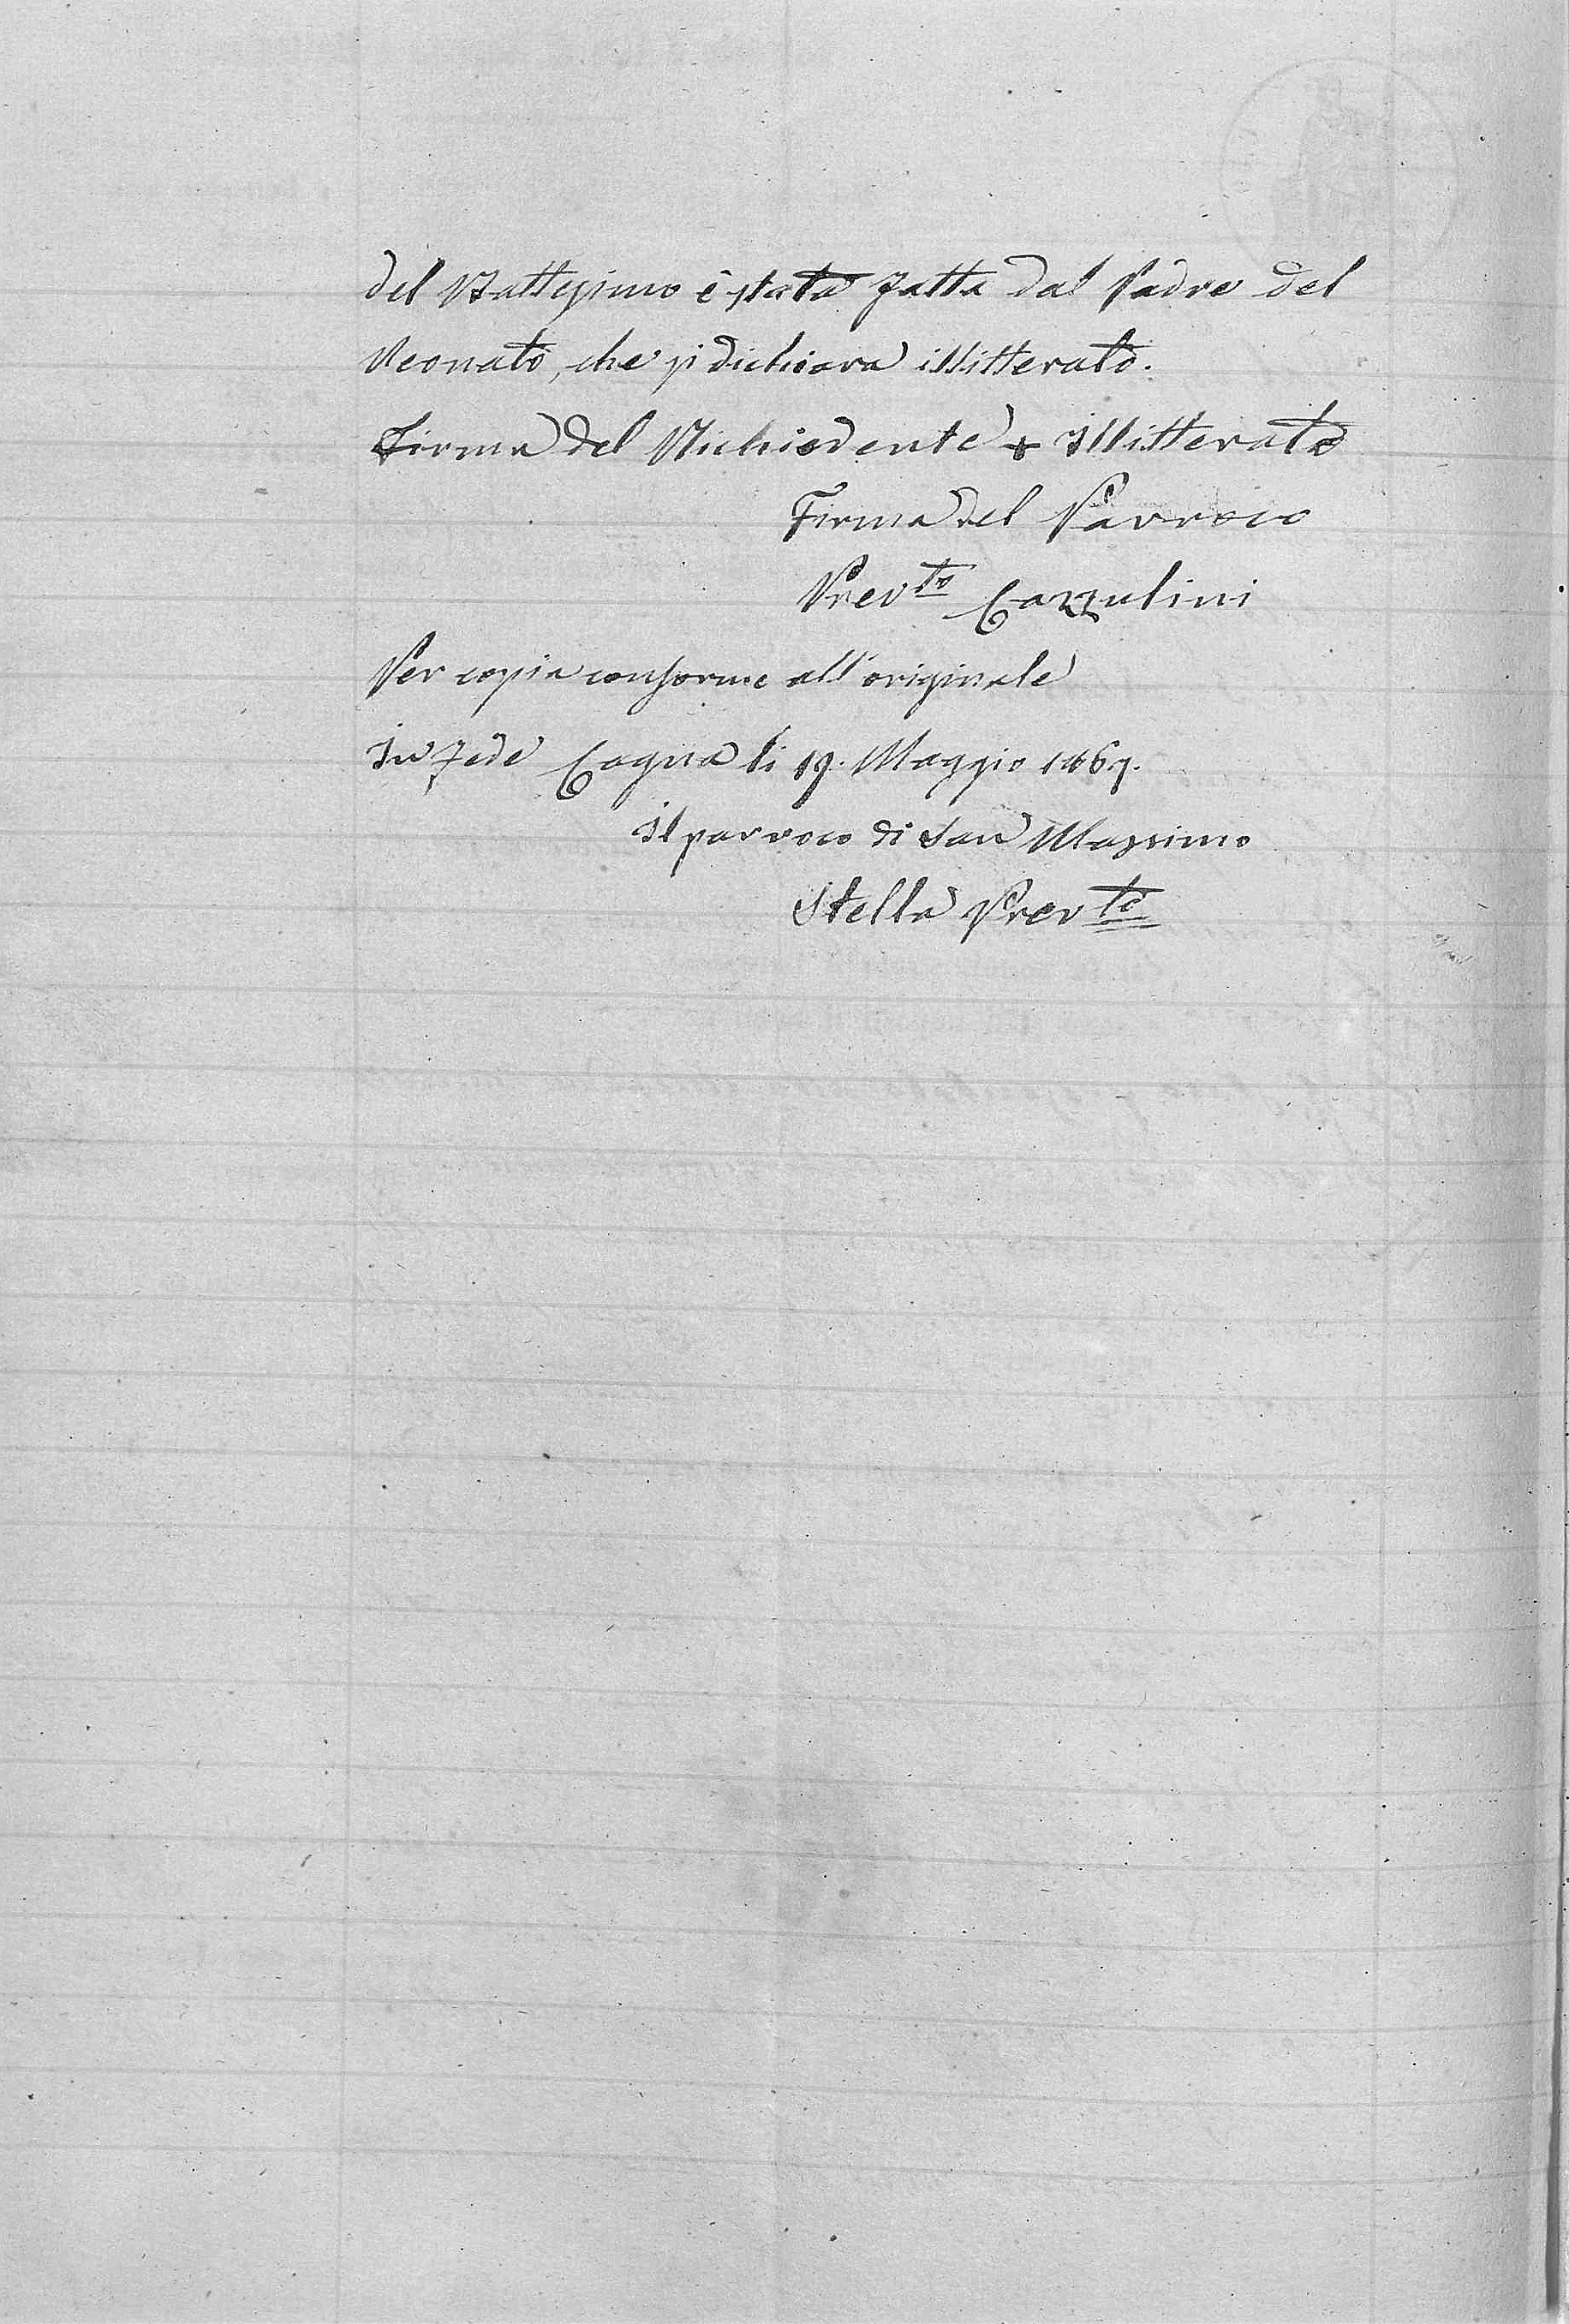 del Battesimo è stata fatta dal Padre del
Neonato, che si dichiara illitterato.
Firma del Richiedente + Illitterato
Firma del Parroco
Prev.to Cazzulini
Per copia conforme all'originale
In fede Cagna li 19. Maggio 1867.
Il parroco di San Massimo
Stella Prev.to